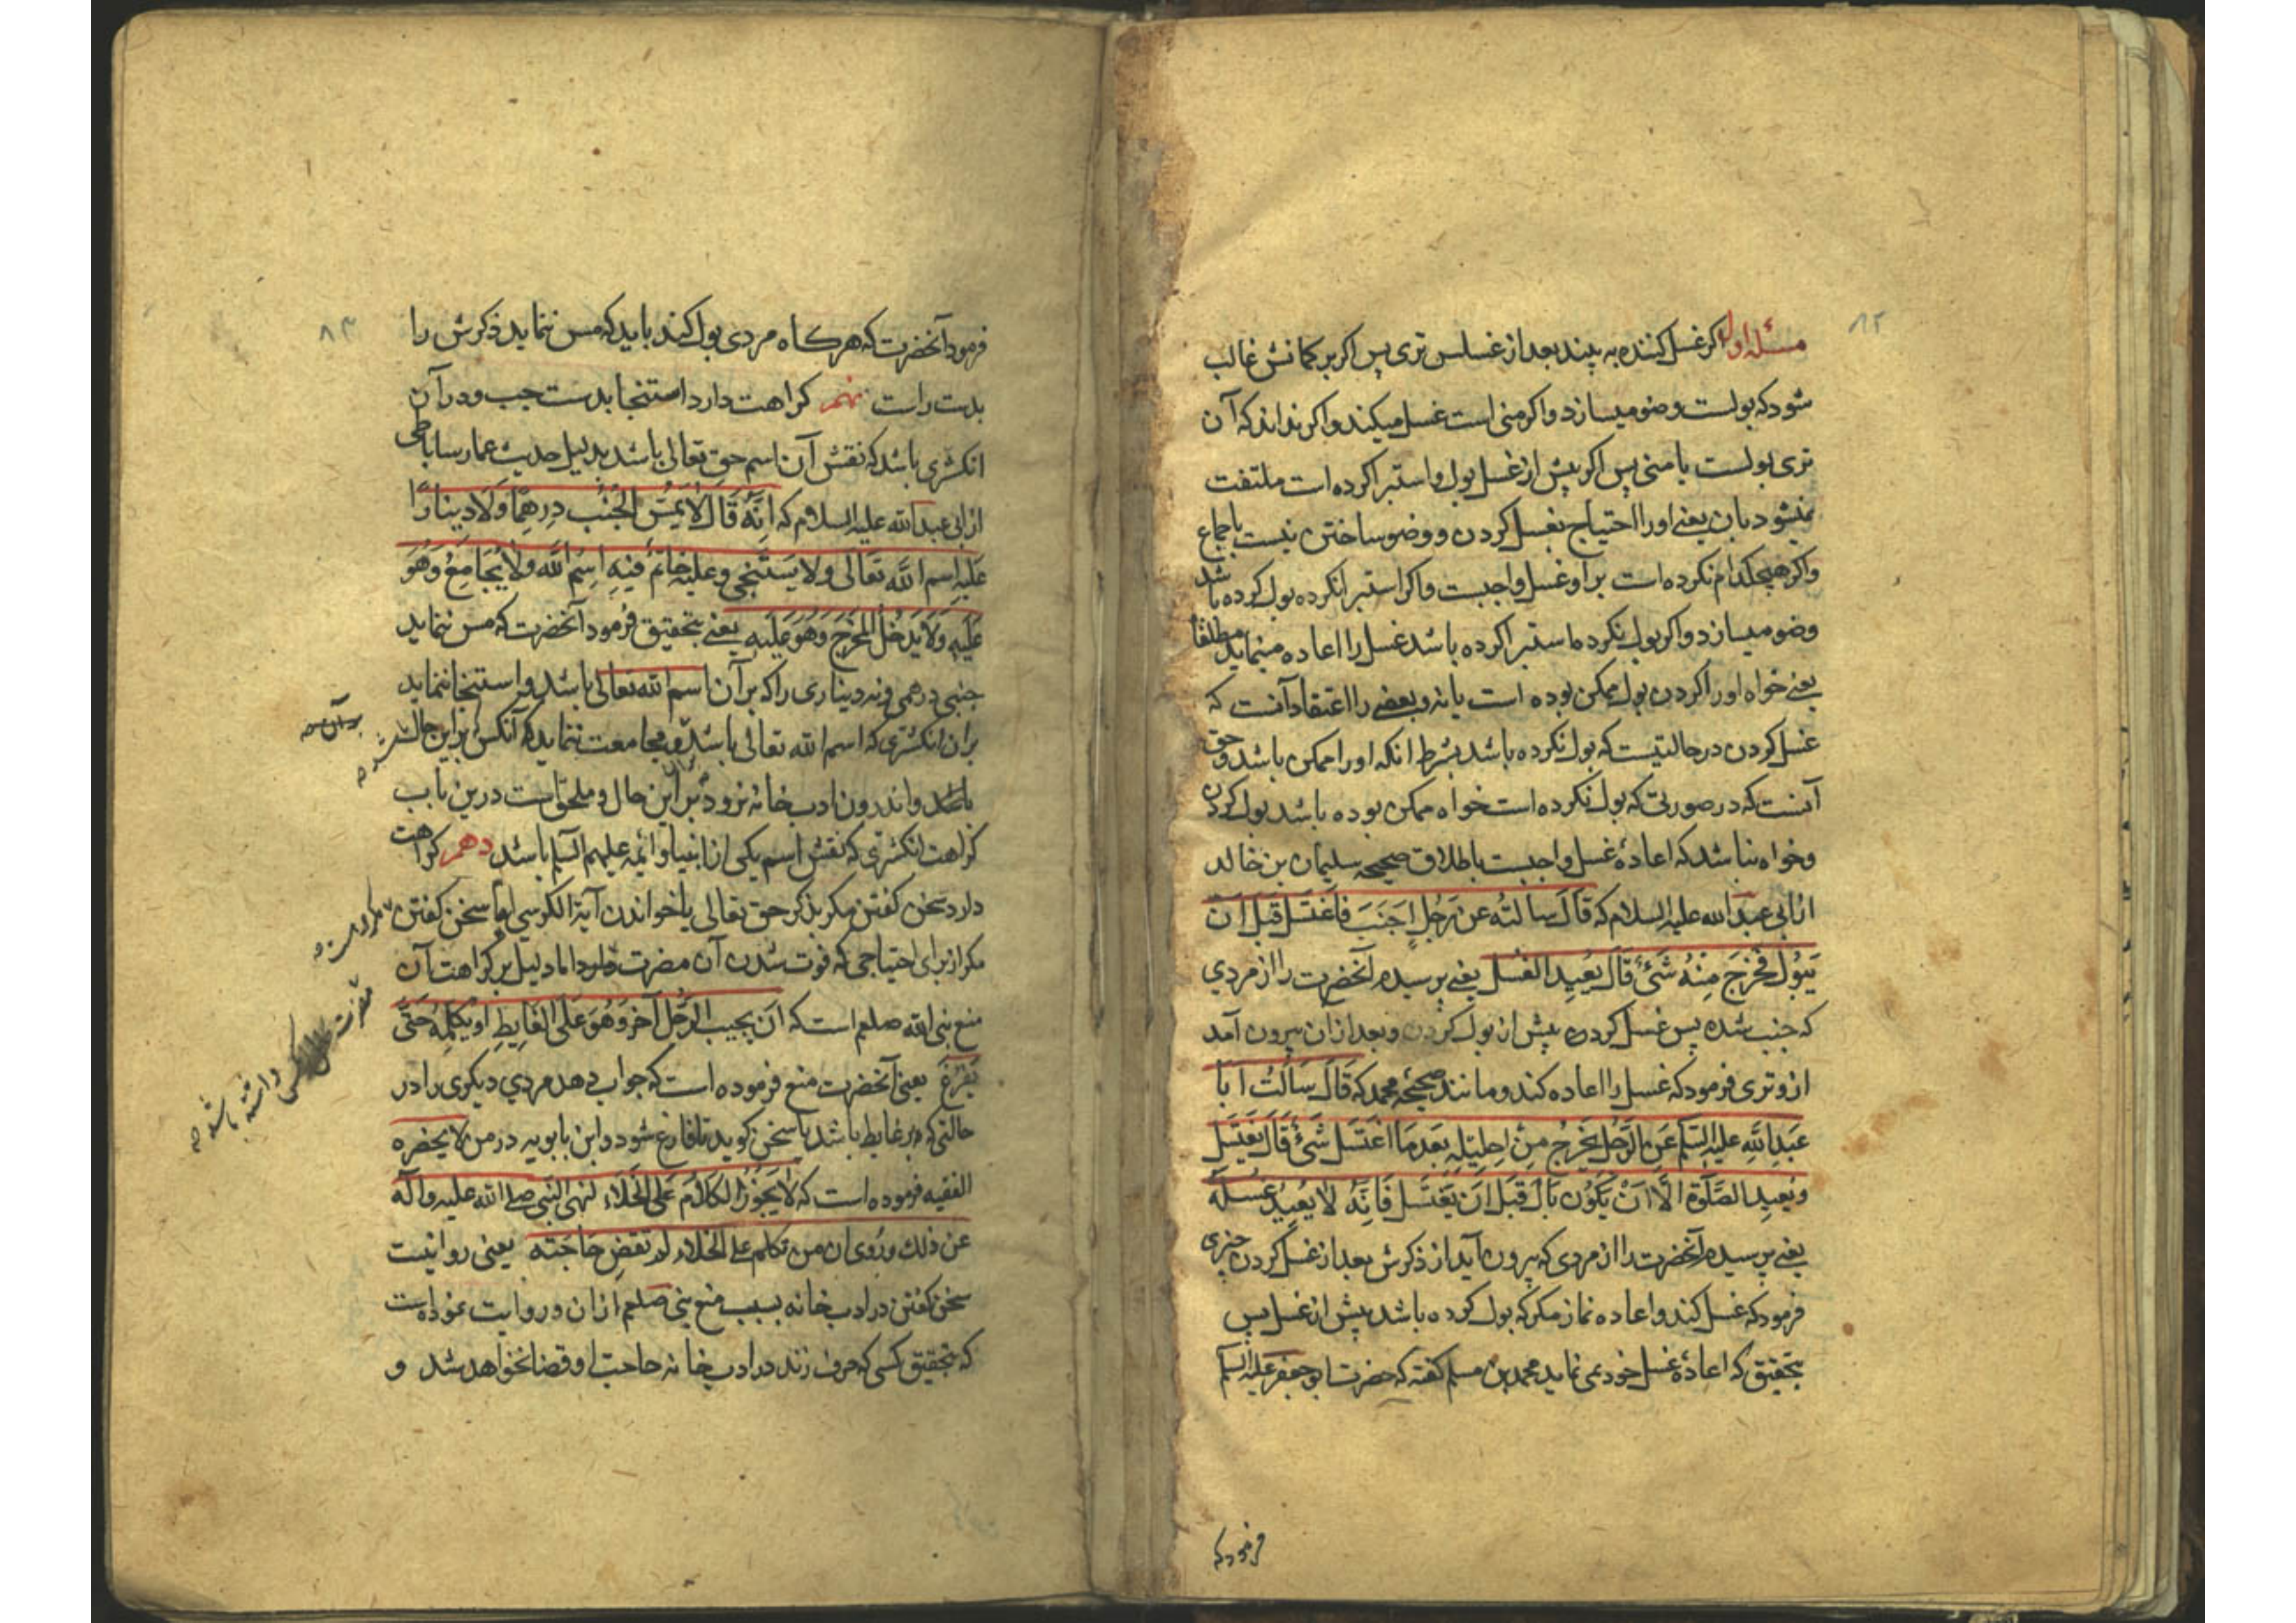 ۸۲
مسئله اول اکر غسل کننده به بیند بعد از غسلس تری پس اکر بر کمانش غالب
شود که بولست وضو میسازد و اکر منی است غسل میکند و اکر نداند که آن
تری بولست یا منی پس اکر پیش از غسل بول و استبرا کرده است ملتفت
نمیشود بان یعنی او را احتیاج بغسل کردن و وضو ساختن نیست باجماع
و اکر هیچکدام نکرده است بر او غسل واجبست و اکر استبرا نکرده بول کرده باشد
وضو میسازد و اکر بول نکرده استبرا کرده باشد غسل را اعاده مینماید مطلقا
یعنی خواه او را کردن بول ممکن بوده است یا نه و بعضی را اعتقاد آنست که
غسل کردن در حالتیست که بول نکرده باشد بشرط انکه او را ممکن باشد و حق
آنست که در صورتی که بول نکرده است خواه ممکن بوده باشد بول کردن
و خواه نباشد که اعادهٔ غسل واجبست باطلاق صحیحه سلیمان بن خالد
از ابی عبد الله علیه السلام که قَالَ سالتهُ عن رَجُلٍ اَجنَبَ فَاغتَسَلَ قَبلَ اَن
یَبُوُل فخَرَجَ مِنهُ شَئٌ قَالَ یُعیِد الغُسل یعنی پرسیدم آنحضرت را از مردي
که جنب شده پس غسل کرده پیش از بول کردن و بعد از ان بیرون آمد
ازو تری فرمود که غسل را اعاده کند و مانند صحیحهٔ محمد که قَالَ سَالتُ اَبَا
عَبدِاللهِ علیه السلم عَنِ الرَّجُل یَخرُجُ مِن اِحلیلِهِ بَعدَ مَا اغتَسَل شَئٌ قَالَ یَغتَسِل
وَیُعیدِ الصَّلوة الَّا اَنْ یَکوُن بَالَ قَبلَ اَن یَغتَسل فَاِنَّهُ لَا یُعیِدُ غسلَهُ
یعنی پرسیدم آنحضرت را از مردی که بیرون آید از ذکرش بعد از غسل کردن چیزی
فرمود که غسل کند و اعاده نماز مکر که بول کرده باشد پیش از غسل پس
بتحقیق که اعادهٔ غسل خود نمی نماید محمد بن مسلم کفته که حضرت ابو جعفر علیه السلم
فرمود که
۸۳
فرمود آنحضرت که هرکاه مردی بول کند باید که مس ننماید ذکرش را
بدست راست نهم کراهت دارد استنجا بدست چپ و در آن
انکشتری باشد که نقش آن اسم حق تعالی باشد بدلیل حدیث عمار ساباطی
از ابی عبد الله علیه السلام که اِنَّهُ قَالَ لَا یَمُسَّ الجُنُب دِرهمًا وَلَا دِینَارًا
عَلَیهِ اسم الله تعَالی و لا یَستنجی و علیه خاتم فیهِ اسِمُ الله ولا یُجَامعُ وَهُو
عَلَیهِ وَلَا یَدخُل المخرَج وَهُوَ عَلَیهِ یعنی بتحقیق فرمود آنحضرت که مس ننماید
جنبی درهمی و نه دیناری را که بر آن اسم الله تعالی باشد و استنجا ننماید
بر ان انکشتری که اسم الله تعالی باشد و مجامعت ننماید که آنکس بر این حال
باشد و اندرون ادب خانه نرود بر این حال و ملحق است درین باب
کراهت انکشتری که نقش اسم یکی از انبیا و ائمه علیهم السلم باشد دهم کراهت
دارد سخن کفتن مکر بذکر حق تعالی یا خواندن آیة الکرسی اما سخن کفتن
مکر از برای احتیاجی که فوت شدن آن مضرت دارد اما دلیل بر کراهت آن
منع نبی الله صلعم است که اَن یجیب الرَّجُل آخر وَهُوَ عَلَی الغَایِطِ اَو یُکَلِّمهُ حَتّی
یَفرُغَ یعنی آنحضرت منع فرموده است که جواب دهد مردي دیکری را در
حالتی که بر غایط باشد یا سخن کوید تا فارغ شود و ابن بابویه در من لا یحضره
الفقیه فرموده است که لَا یَجُوزُ الکَلَامُ عَلَی الخَلَاءِ لنهی النَّبی صلے الله علیه و اله
عن ذلك و رُوی ان من تکلم علی الخلاء لم تقضِ حَاجَته یعنی روا نیست
سخن کفتن در ادب خانه بسبب منع نبی صلعم از ان و روایت نموده است
که بتحقیق کسی که حرف زند در ادب خانه حاجت او قضا نخواهد شد و
بر آن